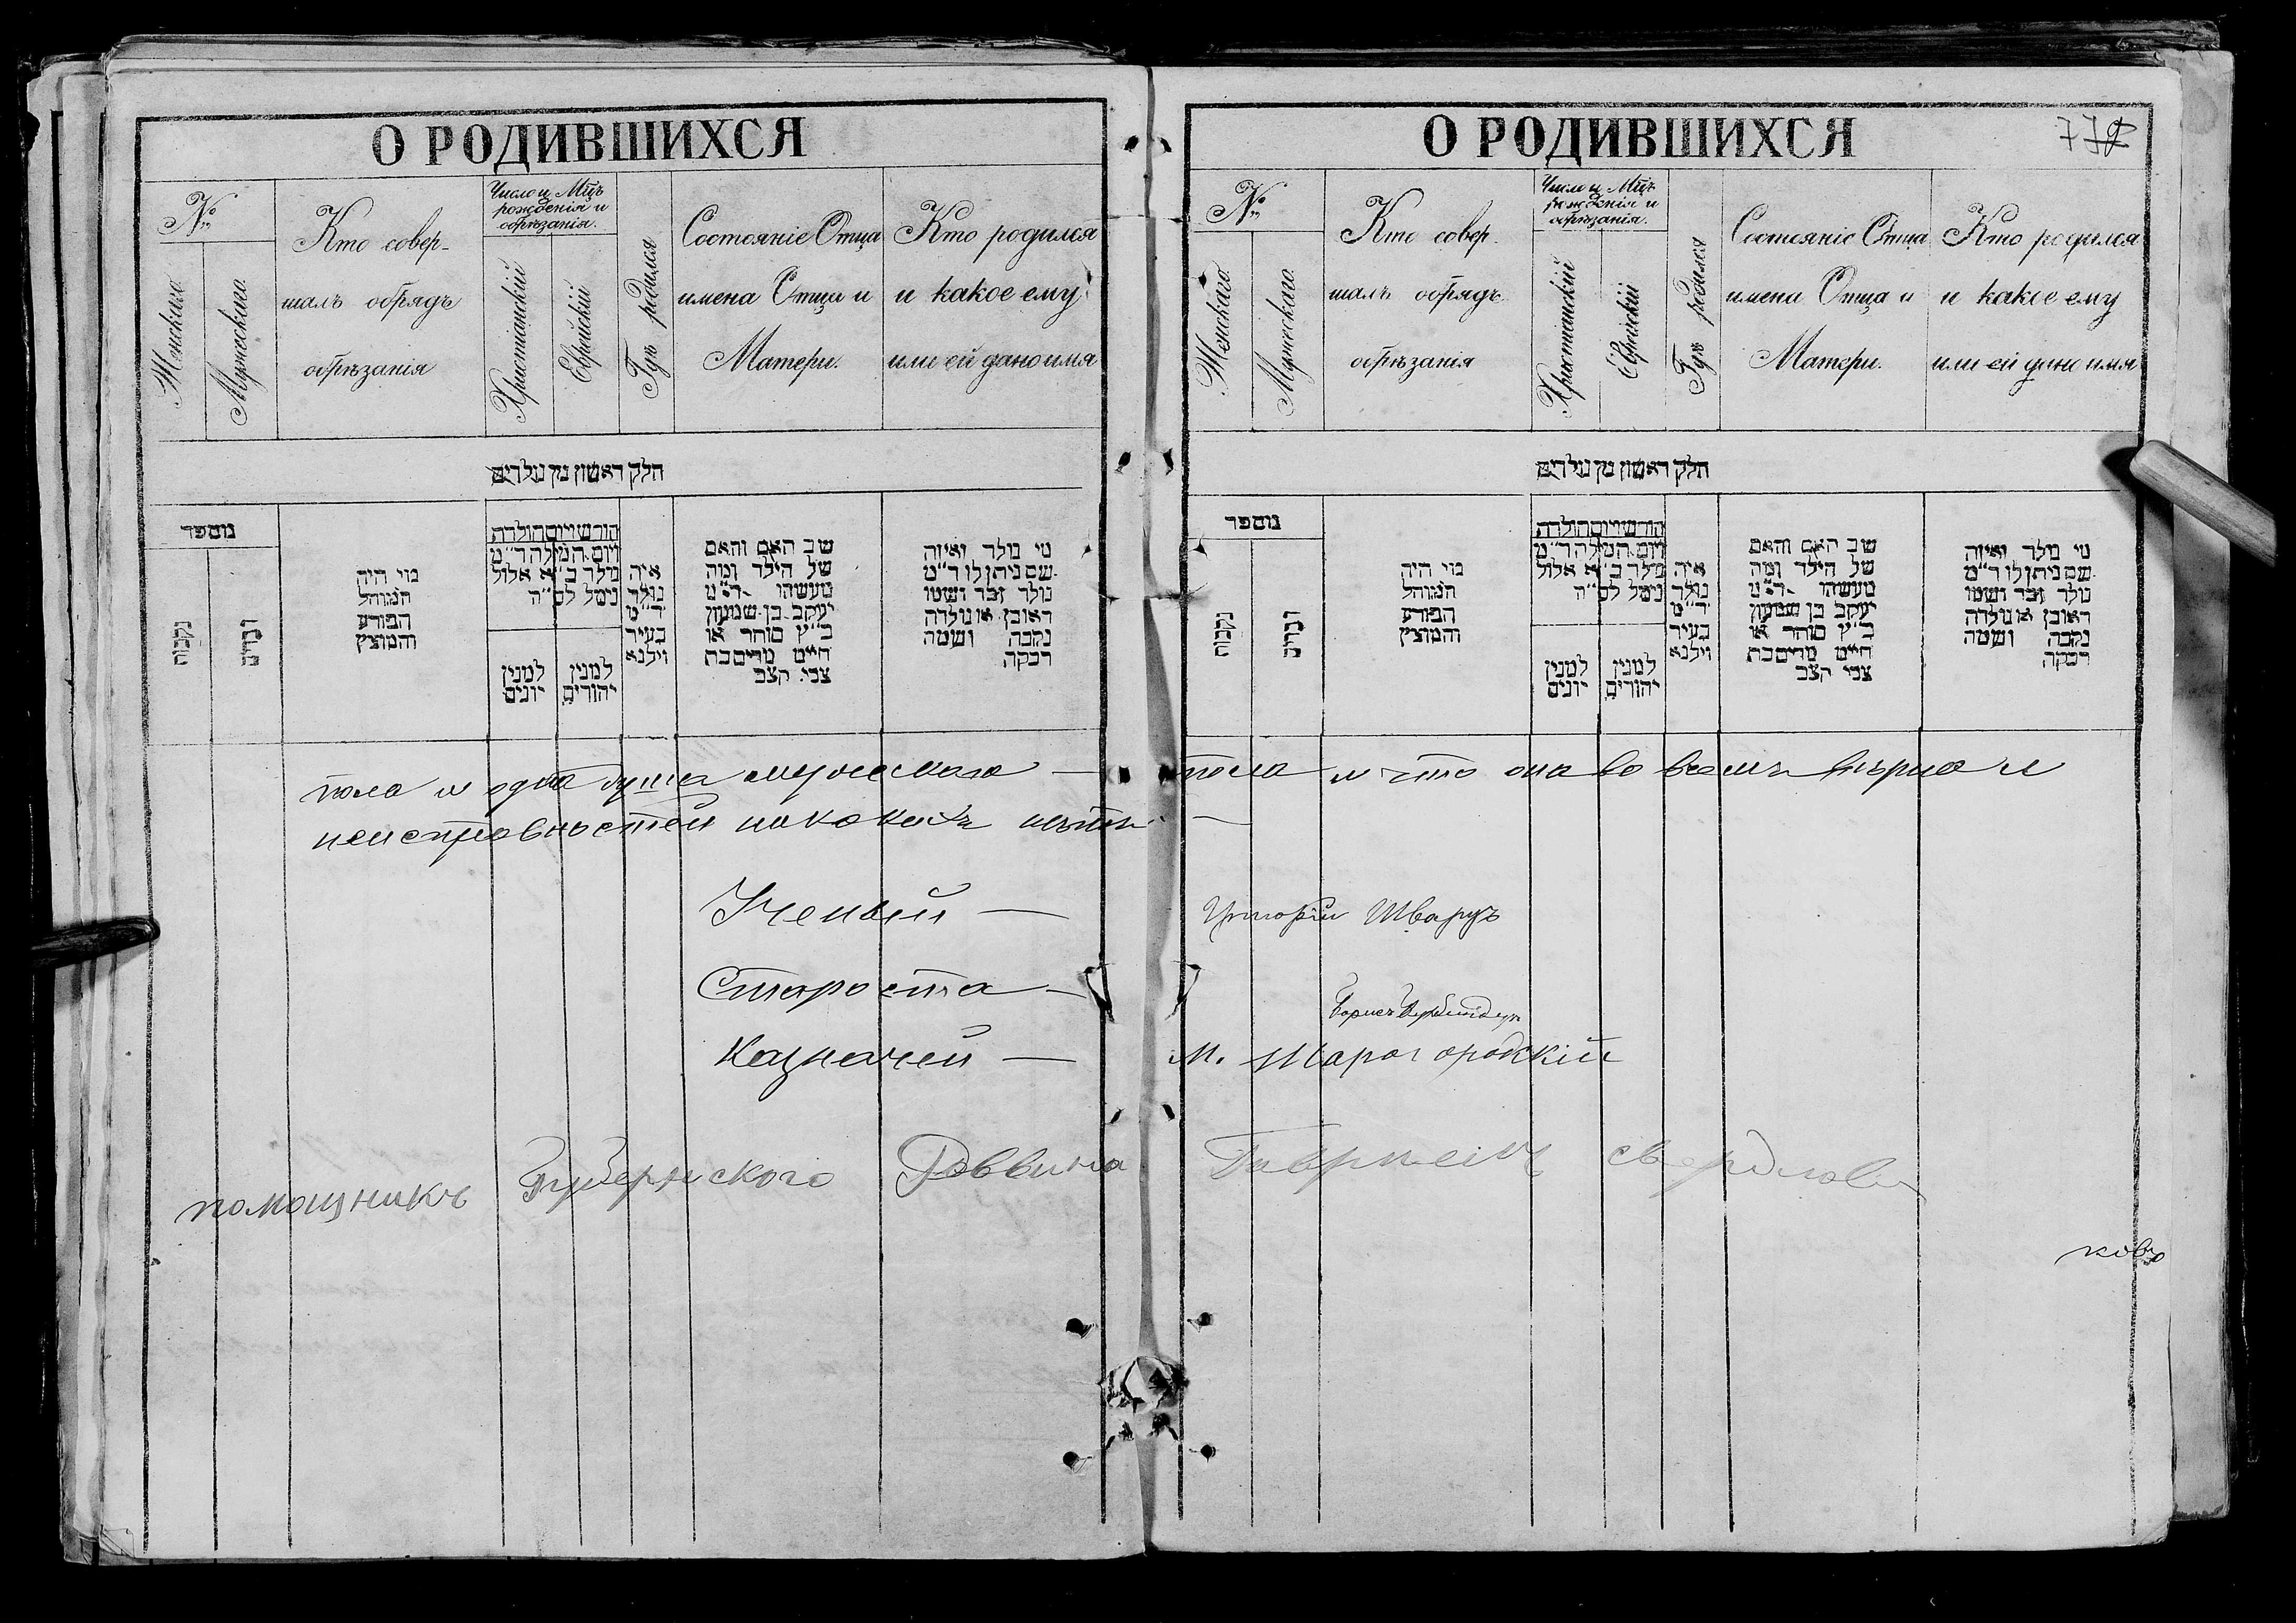 О РОДИВШИХСЯ
№
Женскаго
Мужескаго
Кто совер-
шалъ обрядъ
обрѣзанія
Число и Мцъ
рожденія и
обрѣзанія.
Христіанскій
Еврейскій
Гдѣ родился
Состояніе Отца
имена Отца и
Матери.
Кто родился
и какое ему
или ей дано имя
חלק ראשון מן נולדים
מספר
נקבות
זכרים
מי היה
המוהל
הפורע
והמוצץ
חודש ויום הולדת
ויום המילה ד"מ
נולד כ"א אלול
נימל לס"ה
למנין
יונים
למנין
יהודים
איה
נולד
ד"מ
בעיר
וילנא
שב האם והאם
של הילד ומה
מעשהו ד"מ
יעקב בן שמעון
כ"ץ סוחר או
חייט מרים בת
צבי קצב
מי נולד ואיזה
שם ניתן לו ד"מ
נולד זכר ושמו
ראובן או נולדה
נקבה ושמה
רבקה
пола и одна душа мужескаго —
неисправностей никакихъ нѣтъ —
Ученый —
Староста —
Казначей —
помощникъ Губернского Раввина
О РОДИВШИХСЯ
№
Женскаго
Мужескаго
Кто совер-
шалъ обрядъ
обрѣзанія
Число и Мцъ
рожденія и
обрѣзанія.
Христіанскій
Еврейскій
Гдѣ родился
Состояніе Отца
имена Отца и
Матери.
Кто родился
и какое ему
или ей дано имя
חלק ראשון מן נולדים
מספר
נקבות
זכרים
מי היה
המוהל
הפורע
והמוצץ
חודש ויום הולדת
ויום המילה ד"מ
נולד כ"א אלול
נימל לס"ה
למנין
יונים
למנין
יהודים
איה
נולד
ד"מ
בעיר
וילנא
שב האם והאם
של הילד ומה
מעשהו ד"מ
יעקב בן שמעון
כ"ץ סוחר או
חייט מרים בת
צבי קצב
מי נולד ואיזה
שם ניתן לו ד"מ
נולד זכר ושמו
ראובן או נולדה
נקבה ושמה
רבקה
пола и что она во всемъ вѣрна и
Шварцъ
Борисъ
М. Шарогородскій
Гавріилъ Свердлов
ковъ